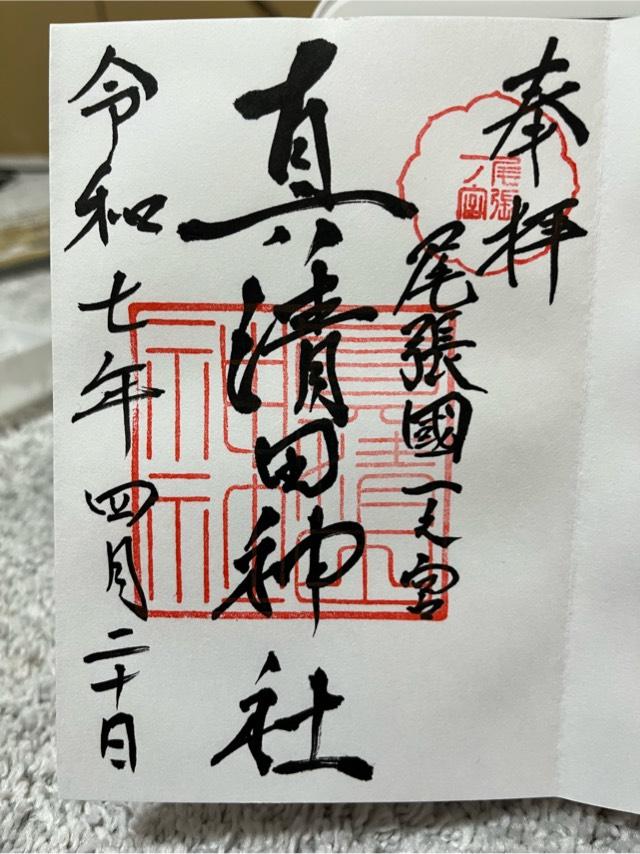 奉拝
尾張國一之宮
尾張
一ノ宮
真清田神社
令和七年四月二十日